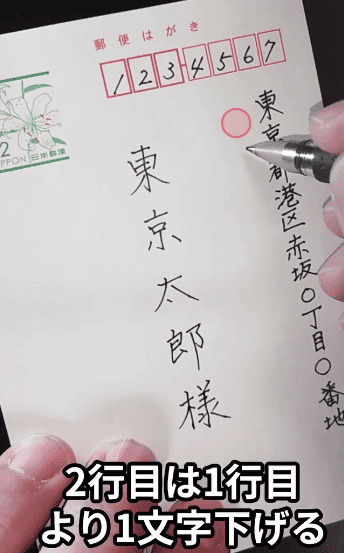 郵便はがき
1234567
東京都港区赤坂〇丁目〇番地
東京太郎様
NIPPON 日本郵便
2行目は1行目
より1文字下げる